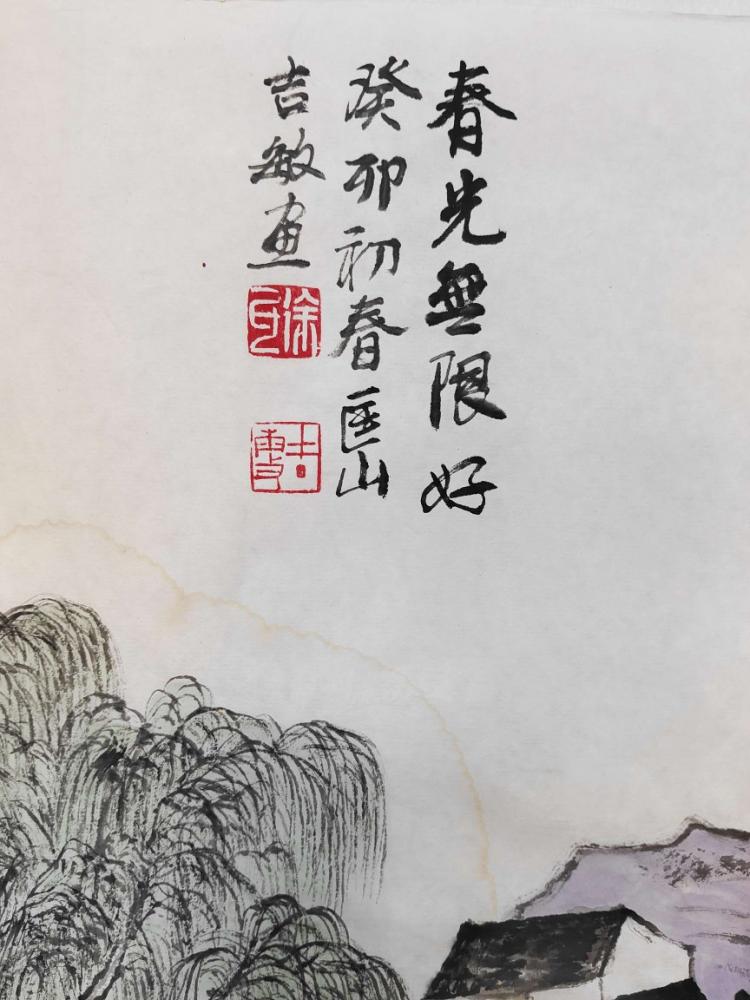 春光無限好
癸卯初春匡山
吉敏畫
徐印
吉敏